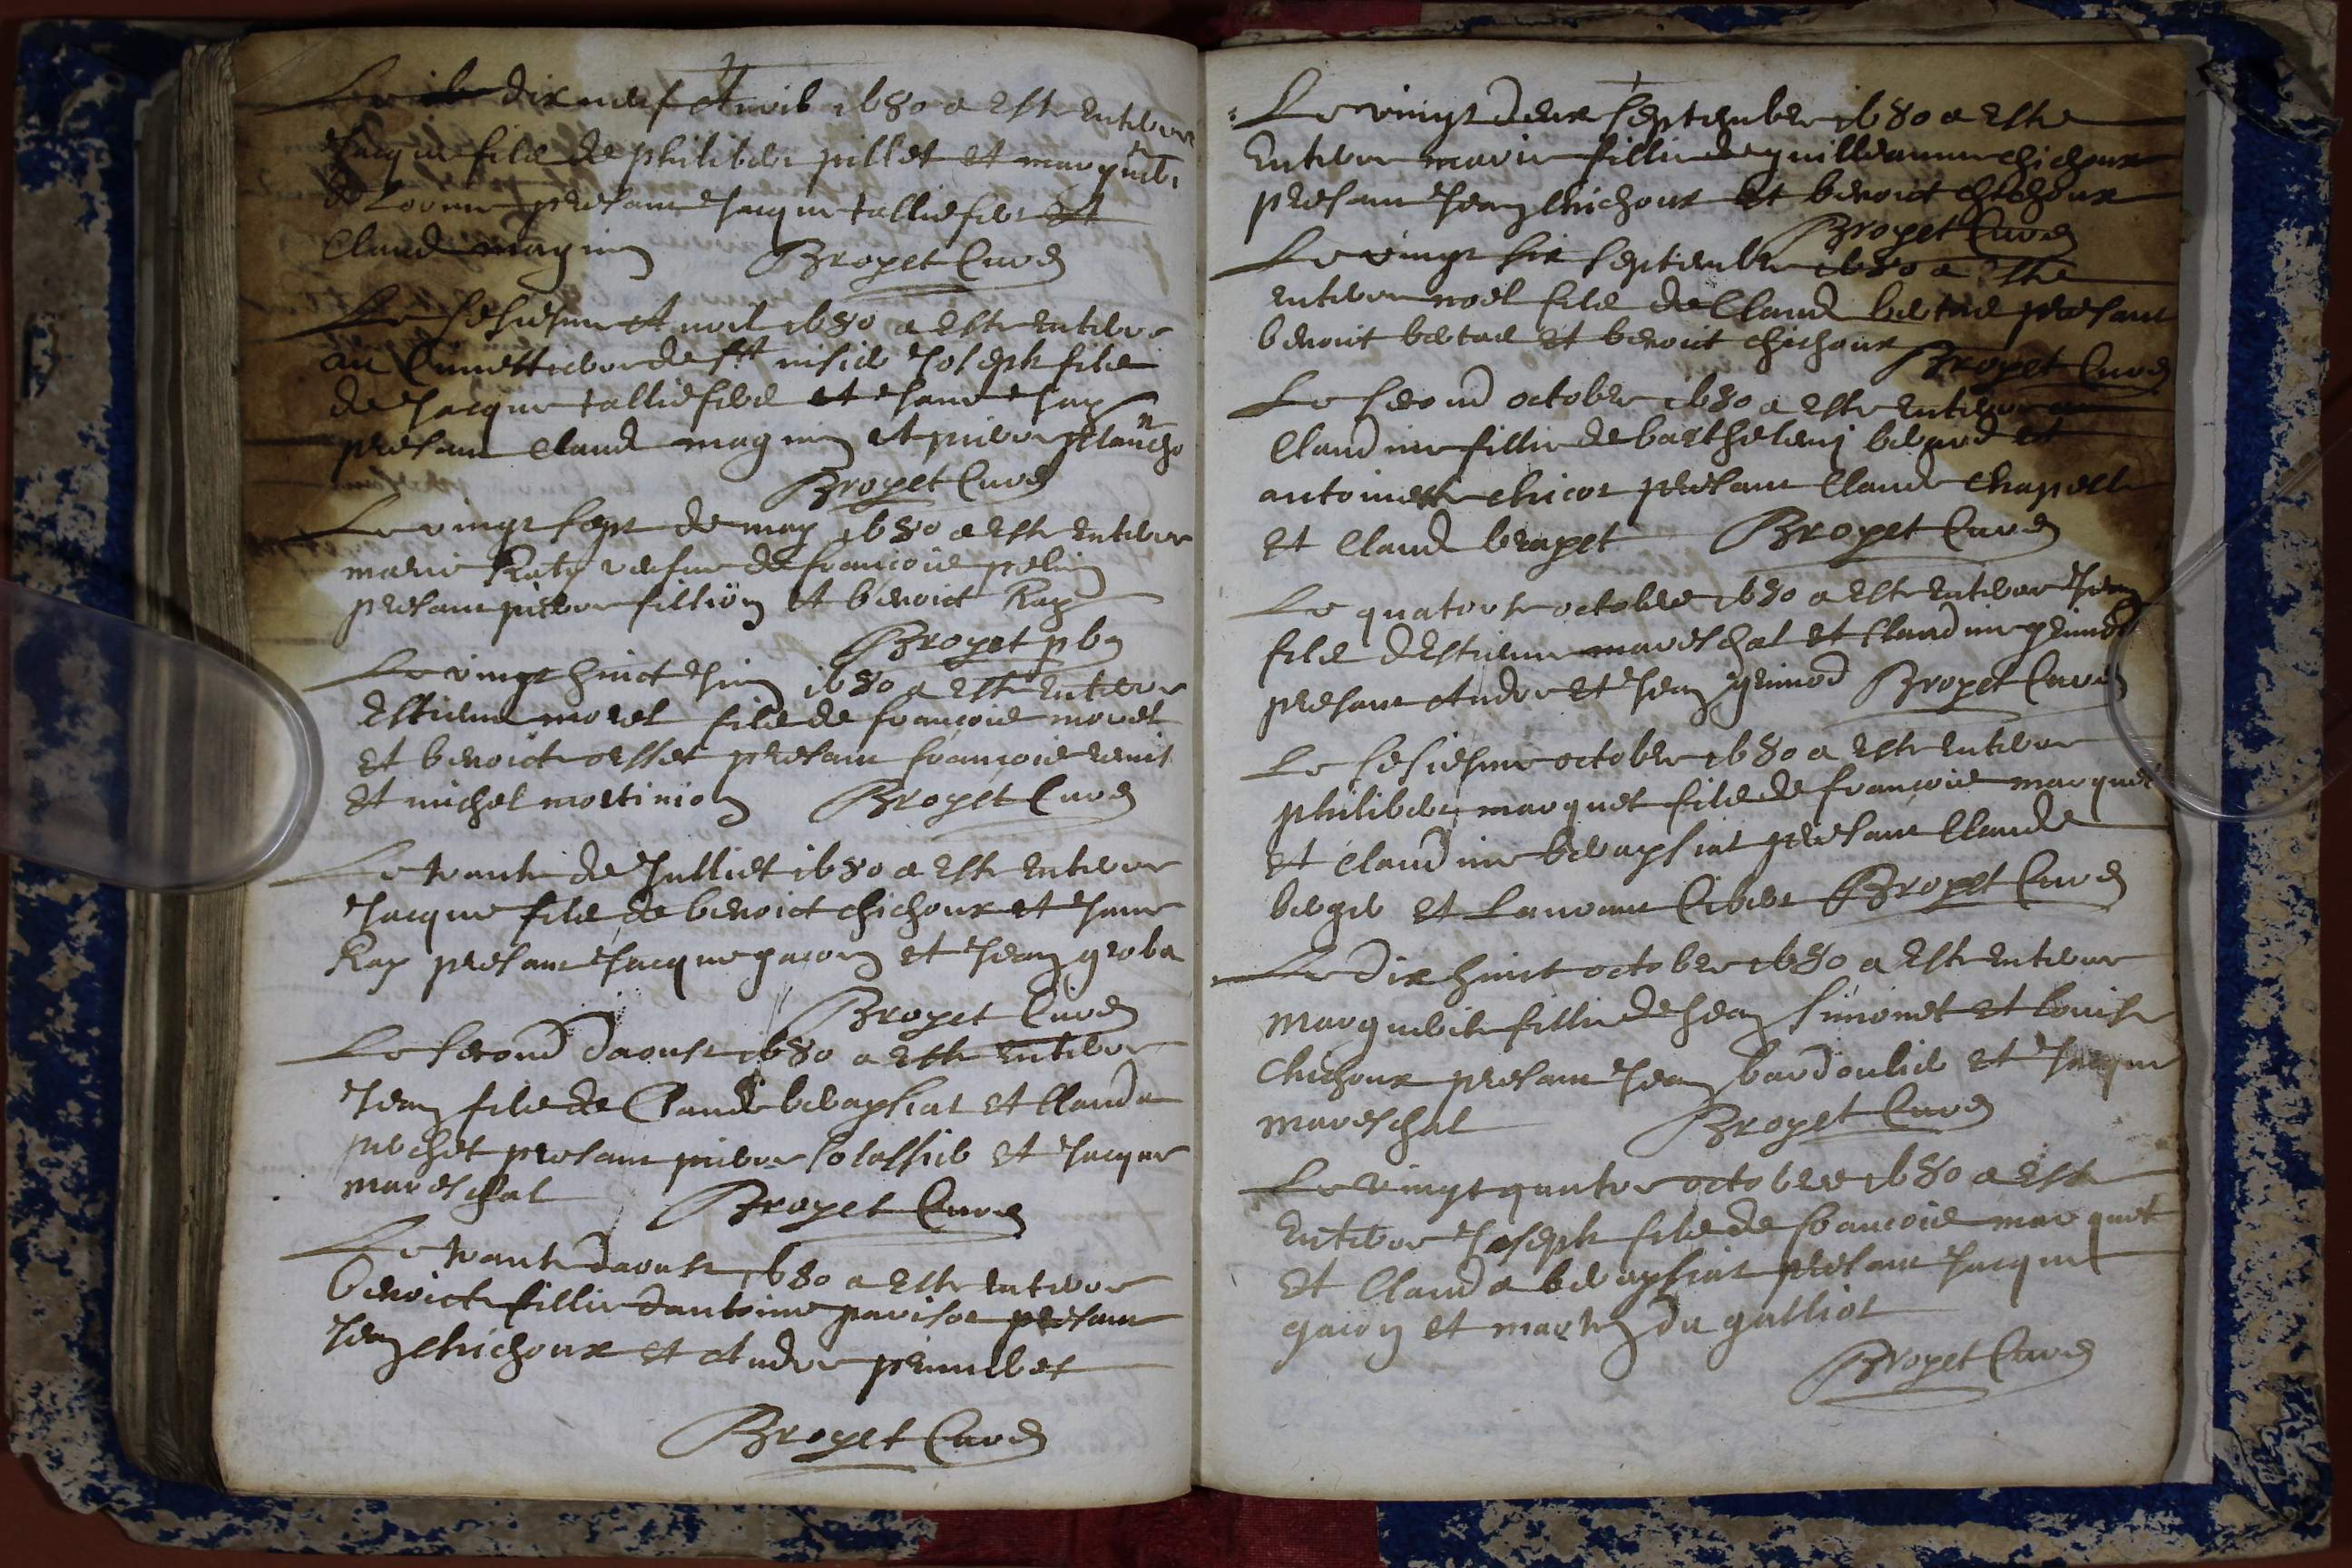 Le dix neuf Avril 1680 a este enterre
Jacque fils de philibert pillet et marguerite
de Lorme presant Jacque talliefert et
Claude magnin Broyet Curé
Le sesiesme Avril 1680 a este enterre
au Cimettierre de st nisier Joseph fils
de Jacque tallieferd et Jane Jay
presant Claude magnin et pierre planche
Broyet Curé
Le vingt sept de may 1680 a este enterre
marie Raty vesfve de françois pelin
presant pierre fillion et benoict Ray
Broyet pbr
Le vingt huict Juin 1680 a este enterre
Estienne morel fils de françois morel
et benoicte presant françois
et michel mortinion Broyet Curé
Le trante de Julliet 1680 a este enterre
Jacque fils de benoict chichoux et Jane
Ray presant Jacque gacon et Jean groba
Broyet Curé
Le second daoust 1680 a este enterre
Jean fils de Claude berapsiat et Clauda
perchet presant pierre solassier et Jacque
mareschal Broyet Curé
Le trante daoust 1680 a este enterre
benoicte fillie dantoine parisot presant
Jean chichoux et Andre
Broyet Curé
Le vingt deux septembre 1680 a este
enterre marie fillie de guilleaume chichoux
presant Jean chichoux et benoict chichoux
Broyet Curé
Le vingt six septembre 1680 a este
enterre noel fils de Claude bertue presant
benoit bertue et benoict chichoux
Broyet Curé
Le second octobre 1680 a este enterre
Claudine fillie de barthelemi berard et
antoinette chicot presant Claude chapelle
et Claude brapet Broyet Curé
Le quatorse octobre 1680 a este enterre Jean
fils dEstienne mareschal et Claudine grimod
presant Andre et Jean grimod Broyet Curé
Le sesiesme octobre 1680 a este enterre
philibert marquet fils de françois marquet
et Claudine berapsiat presant Claude
berger et Laurant Cibert Broyet Curé
Le dix huict octobre 1680 a este enterre
marguerite fillie de Jean simonet et louise
chichoux presant Jean bardoulier et Jacque
mareschal Broyet Curé
Le vingt quatre octobre 1680 a este
enterre Joseph fils de françois marquet
et Clauda berapsiat presant Jacque
gacon et martin du galliot
Broyet Curé